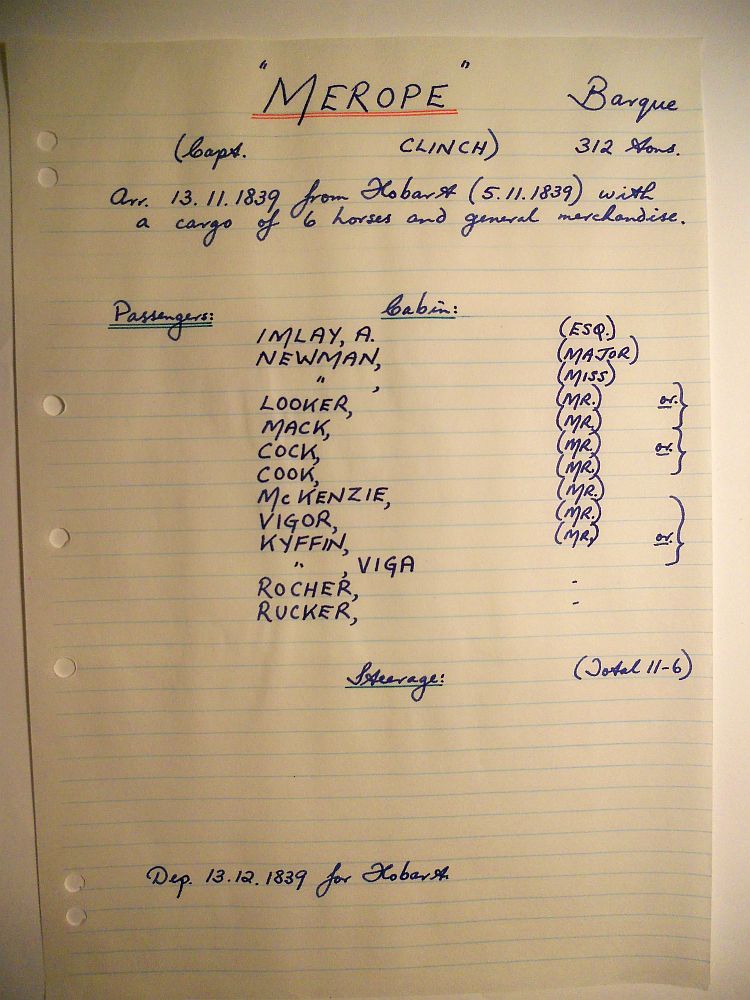 "MEROPE" Barque
(Capt. CLINCH) 312 Tons.
Arr. 13.11.1839 from Hobart (5.11.1839) with
a cargo of 6 horses and general merchandise.
Passengers: Cabin:
IMLAY, A. (ESQ.)
NEWMAN, (MAJOR)
" , (MISS)
LOOKER, (MR.) or. }
MACK, (MR.)
COCK, (MR.) or. }
COOK, (MR.)
McKENZIE, (MR.)
VIGOR, (MR.)
KYFFIN, (MR.) or. }
" , VIGA
ROCHER, -
RUCKER, -
Steerage: (Total 11-6)
Dep. 13.12.1839 for Hobart